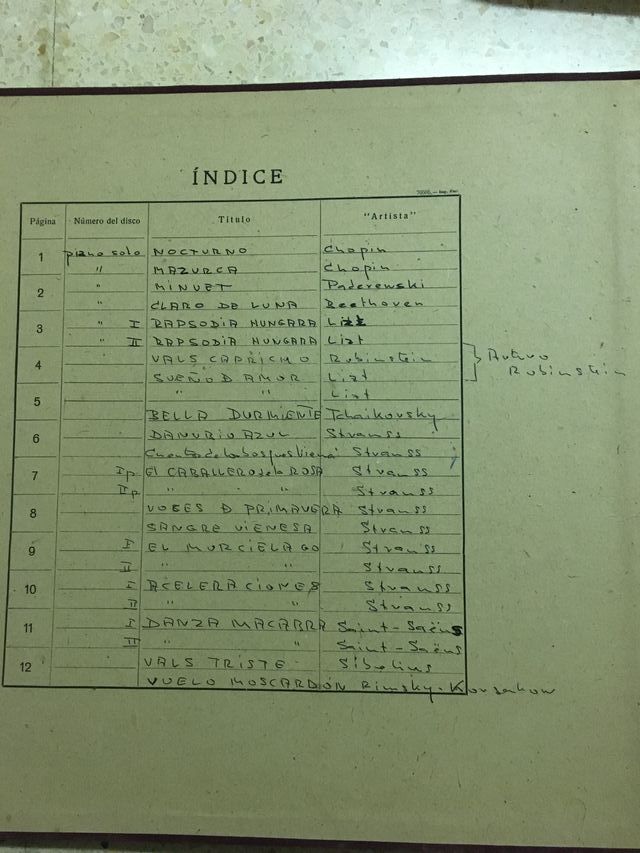 ÍNDICE
Página Número del disco Título "Artista"
1 piano solo NOCTURNO Chopin
" MAZURCA Chopin
2 " MINUET Paderewski
" CLARO DE LUNA Beethoven
3 " I RAPSODIA HUNGARA Lizt
" II RAPSODIA HUNGARA Lizt
4 VALS CAPRICHO Rubinstein Arturo
SUEÑO D AMOR Lizt Rubinstein
5 " " Lizt
BELLA DURMIENTE Tchaikovsky
6 DANUBIO AZUL Strauss
Cuentos de los bosques Viena Strauss
7 Ip El CABALLERO de la ROSA Strauss
IIp " " Strauss
8 VOSES D PRIMAVERA Strauss
SANGRE VIENESA Strauss
9 I EL MURCIELAGO Strauss
II " " Strauss
10 I ACELERACIONES Strauss
II " " Strauss
11 I DANZA MACABRA Saint-Saëns
II " " Saint-Saëns
12 VALS TRISTE Sibelius
VUELO MOSCARDÓN Rimsky-Korsakow